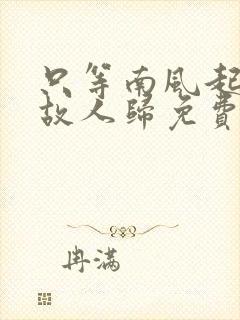 只等南風起
故人歸免費
冉滿